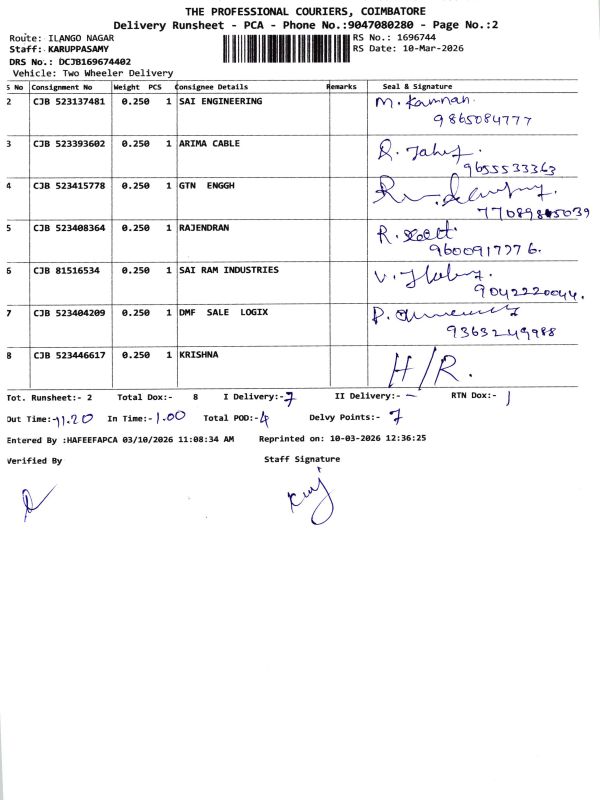 THE PROFESSIONAL COURIERS, COIMBATORE
Delivery Runsheet - PCA - Phone No.:9047080280 - Page No.:2
Route: ILANGO NAGAR RS No.: 1696744
Staff: KARUPPASAMY RS Date: 10-Mar-2026
DRS No.: DCJB169674402
Vehicle: Two Wheeler Delivery
S No Consignment No Weight PCS Consignee Details Remarks Seal & Signature
2 CJB 523137481 0.250 1 SAI ENGINEERING M. Kannan
9865084777
3 CJB 523393602 0.250 1 ARIMA CABLE
9655533363
4 CJB 523415778 0.250 1 GTN ENGGH
5 CJB 523408364 0.250 1 RAJENDRAN
9600917776.
6 CJB 81516534 0.250 1 SAI RAM INDUSTRIES
9042220044.
7 CJB 523404209 0.250 1 DMF SALE LOGIX
9363249988
8 CJB 523446617 0.250 1 KRISHNA H/R.
Tot. Runsheet:- 2 Total Dox:- 8 I Delivery:- 7 II Delivery:- - RTN Dox:- 1
Out Time:- 11.20 In Time:- 1.00 Total POD:- 4 Delvy Points:- 7
Entered By :HAFEEFAPCA 03/10/2026 11:08:34 AM Reprinted on: 10-03-2026 12:36:25
Verified By Staff Signature